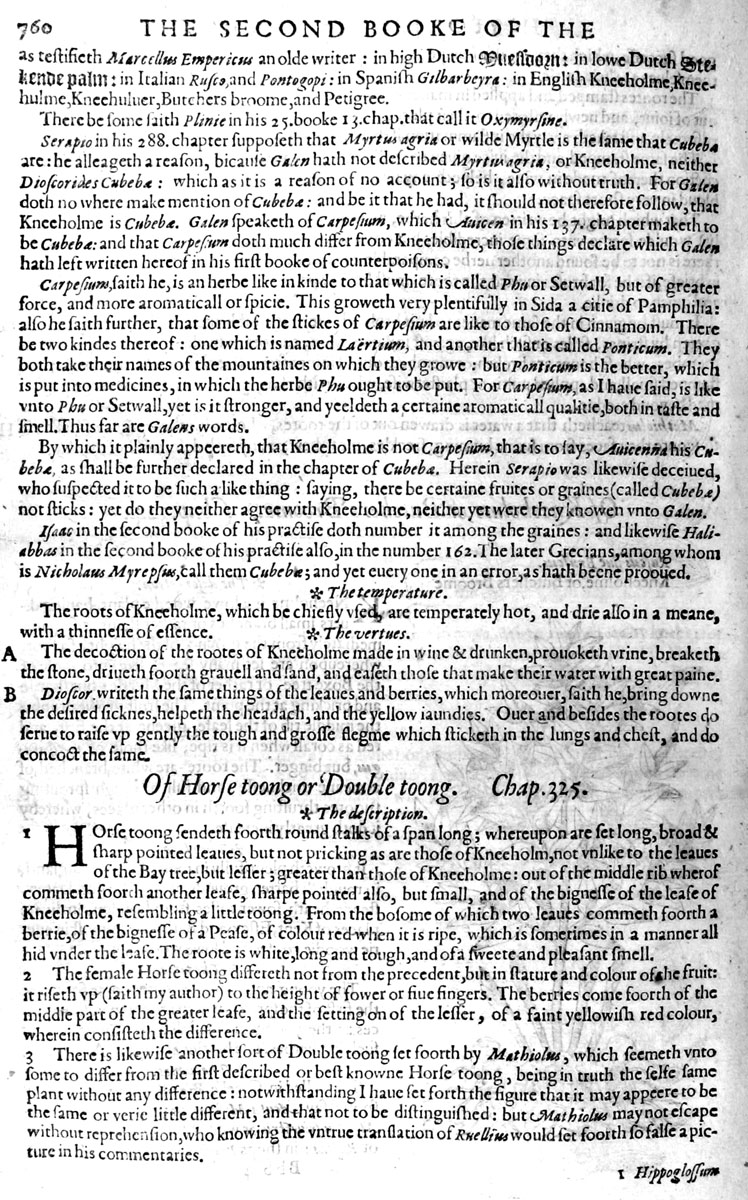 760 THE SECOND BOOKE OF THE
as testifieth Marcellus Empericus an olde writer : in high Dutch Muesdorn: in lowe Dutch Ste-
kende palm: in Italian Rusco, and Pontogopi: in Spanish Gilbarbeyra: in English Kneeholme, Knee-
hulme, Kneehuluer, Butchers broome, and Petigree.
There be some saith Plinie in his 25. booke 13. chap. that call it Oxymyrsine.
Serapio in his 288. chapter supposeth that Myrtus agria or wilde Myrtle is the same that Cubebæ
are: he alleageth a reason, bicause Galen hath not described Myrtus agria, or Kneeholme, neither
Dioscorides Cubebæ: which as it is a reason of no account; so is it also without truth. For Galen
doth no where make mention of Cubebæ: and be it that he had, it should not therefore follow, that
Kneeholme is Cubebæ. Galen speaketh of Carpesium, which Auicen in his 137. chapter maketh to
be Cubebæ: and that Carpesium doth much differ from Kneeholme, those things declare which Galen
hath left written hereof in his first booke of counterpoisons.
Carpesium, saith he, is an herbe like in kinde to that which is called Phu or Setwall, but of greater
force, and more aromaticall or spicie. This groweth very plentifully in Sida a citie of Pamphilia:
also he saith further, that some of the stickes of Carpesium are like to those of Cinnamom. There
be two kindes thereof: one which is named Laërtium, and another that is called Ponticum. They
both take their names of the mountaines on which they growe: but Ponticum is the better, which
is put into medicines, in which the herbe Phu ought to be put. For Carpesium, as I haue said, is like
vnto Phu or Setwall, yet is it stronger, and yeeldeth a certaine aromaticall qualitie, both in taste and
smell. Thus far are Galens words.
By which it plainly appeereth, that Kneeholme is not Carpesium, that is to say, Auicenna his Cu-
bebæ, as shall be further declared in the chapter of Cubebæ. Herein Serapio was likewise deceiued,
who suspected it to be such a like thing: saying, there be certaine fruites or graines (called Cubebæ)
not sticks: yet do they neither agree with Kneeholme, neither yet were they knowen vnto Galen.
Isaac in the second booke of his practise doth number it among the graines: and likewise Hali-
abbas in the second booke of his practise also, in the number 162. The later Grecians, among whom
is Nicholaus Myrepsus, call them Cubebæ; and yet euery one in an error, as hath beene prooued.
* The temperature.
The roots of Kneeholme, which be chiefly vsed, are temperately hot, and drie also in a meane,
with a thinnesse of essence. * The vertues.
A The decoction of the rootes of Kneeholme made in wine & drunken, prouoketh vrine, breaketh
the stone, driueth foorth grauell and sand, and easeth those that make their water with great paine.
B Dioscor. writeth the same things of the leaues and berries, which moreouer, saith he, bring downe
the desired sicknes, helpeth the headach, and the yellow iaundies. Ouer and besides the rootes do
serue to raise vp gently the tough and grosse flegme which sticketh in the lungs and chest, and do
concoct the same.
Of Horse toong or Double toong. Chap. 325.
* The description.
1 HOrse toong sendeth foorth round stalks of a span long; whereupon are set long, broad &
sharp pointed leaues, but not pricking as are those of Kneeholm, not vnlike to the leaues
of the Bay tree, but lesser; greater than those of Kneeholme: out of the middle rib wherof
commeth foorth another leafe, sharpe pointed also, but small, and of the bignesse of the leafe of
Kneeholme, resembling a little toong. From the bosome of which two leaues commeth foorth a
berrie, of the bignesse of a Pease, of colour red when it is ripe, which is sometimes in a manner all
hid vnder the leafe. The roote is white, long and tough, and of a sweete and pleasant smell.
2 The female Horse toong differeth not from the precedent, but in stature and colour of the fruit:
it riseth vp (saith my author) to the height of fower or fiue fingers. The berries come foorth of the
middle part of the greater leafe, and the setting on of the lesser, of a faint yellowish red colour,
wherein consisteth the difference.
3 There is likewise another sort of Double toong set foorth by Mathiolus, which seemeth vnto
some to differ from the first described or best knowne Horse toong, being in truth the selfe same
plant without any difference: notwithstanding I haue set forth the figure that it may appeere to be
the same or verie little different, and that not to be distinguished: but Mathiolus may not escape
without reprehension, who knowing the vntrue translation of Ruellius would set foorth so false a pic-
ture in his commentaries.
1 Hippoglossum